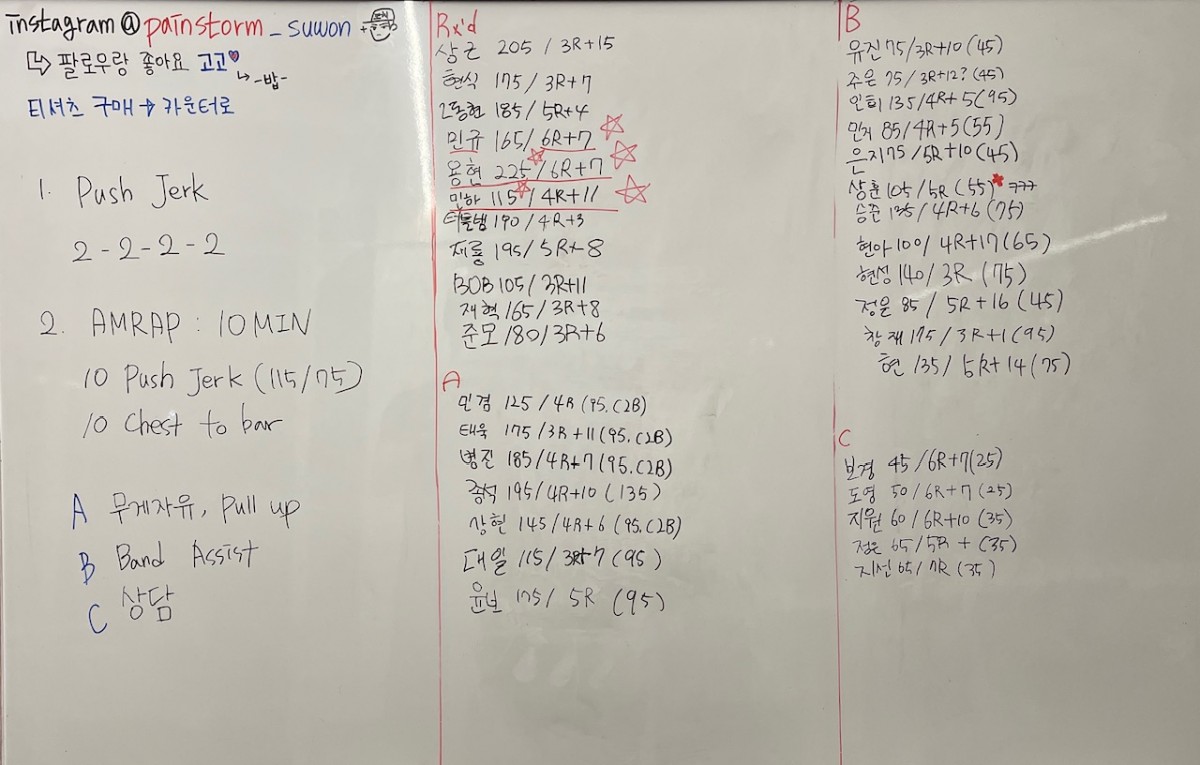 instagram@painstorm_suwon
↳ 팔로우랑 좋아요 고고♥
↳ -밥-
티셔츠 구매 → 카운터로
1. Push Jerk
2-2-2-2
2. AMRAP : 10MIN
10 Push Jerk (115/75)
10 Chest to bar
A 무게자유, Pull up
B Band Assist
C 상담
Rx'd
상근 205 / 3R+15
현식 175 / 3R+7
185/ 5R+4
민규 165/ 6R+7 ☆
용현 225☆/6R+7 ☆
민하 115☆/ 4R+11 ☆
190 / 4R+3
재룡 195/ 5R+8
BOB 105/ 3R+11
재혁 165/ 3R+8
준모 180/3R+6
A
민겸 125 / 4R (95. C2B)
태욱 175 / 3R+11(95. C2B)
병진 185/4R+7 (95. C2B)
종석 195/ 4R+10 (135)
상현 145/ 4R+6 (95. C2B)
대일 115/ 3R+7 (95)
윤보 175/ 5R (95)
B
유진 75/3R+10 (45)
주은 75 / 3R+12? (45)
인희 135/4R+5(95)
민지 85/4R+5(55)
은지 75 / 5R+10 (45)
상훈 105/ 5R (55)* ㅋㅋㅋ
승준 135/ 4R+6 (75)
현아 100/ 4R+17(65)
현성 140/ 3R (75)
정은 85 / 5R+16 (45)
창재 175 / 3R+1(95)
현 135/ 5R+14 (75)
C
보경 45 / 6R+7(25)
도영 50 / 6R+7 (25)
지원 60 / 6R+10 (35)
정은 65/ 5R + (35)
지선 65/ 7R (35)